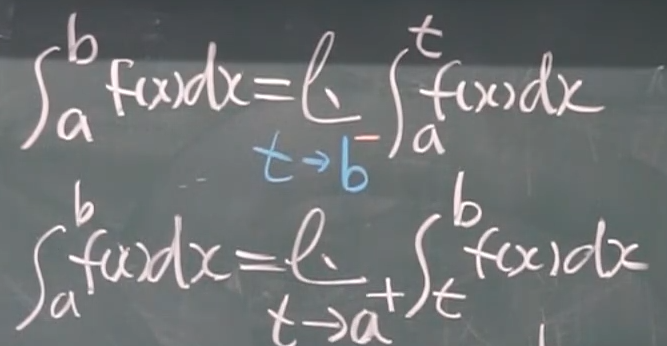 ∫_a^b f(x)dx = lim_{t→b⁻} ∫_a^t f(x)dx
∫_a^b f(x)dx = lim_{t→a⁺} ∫_t^b f(x)dx